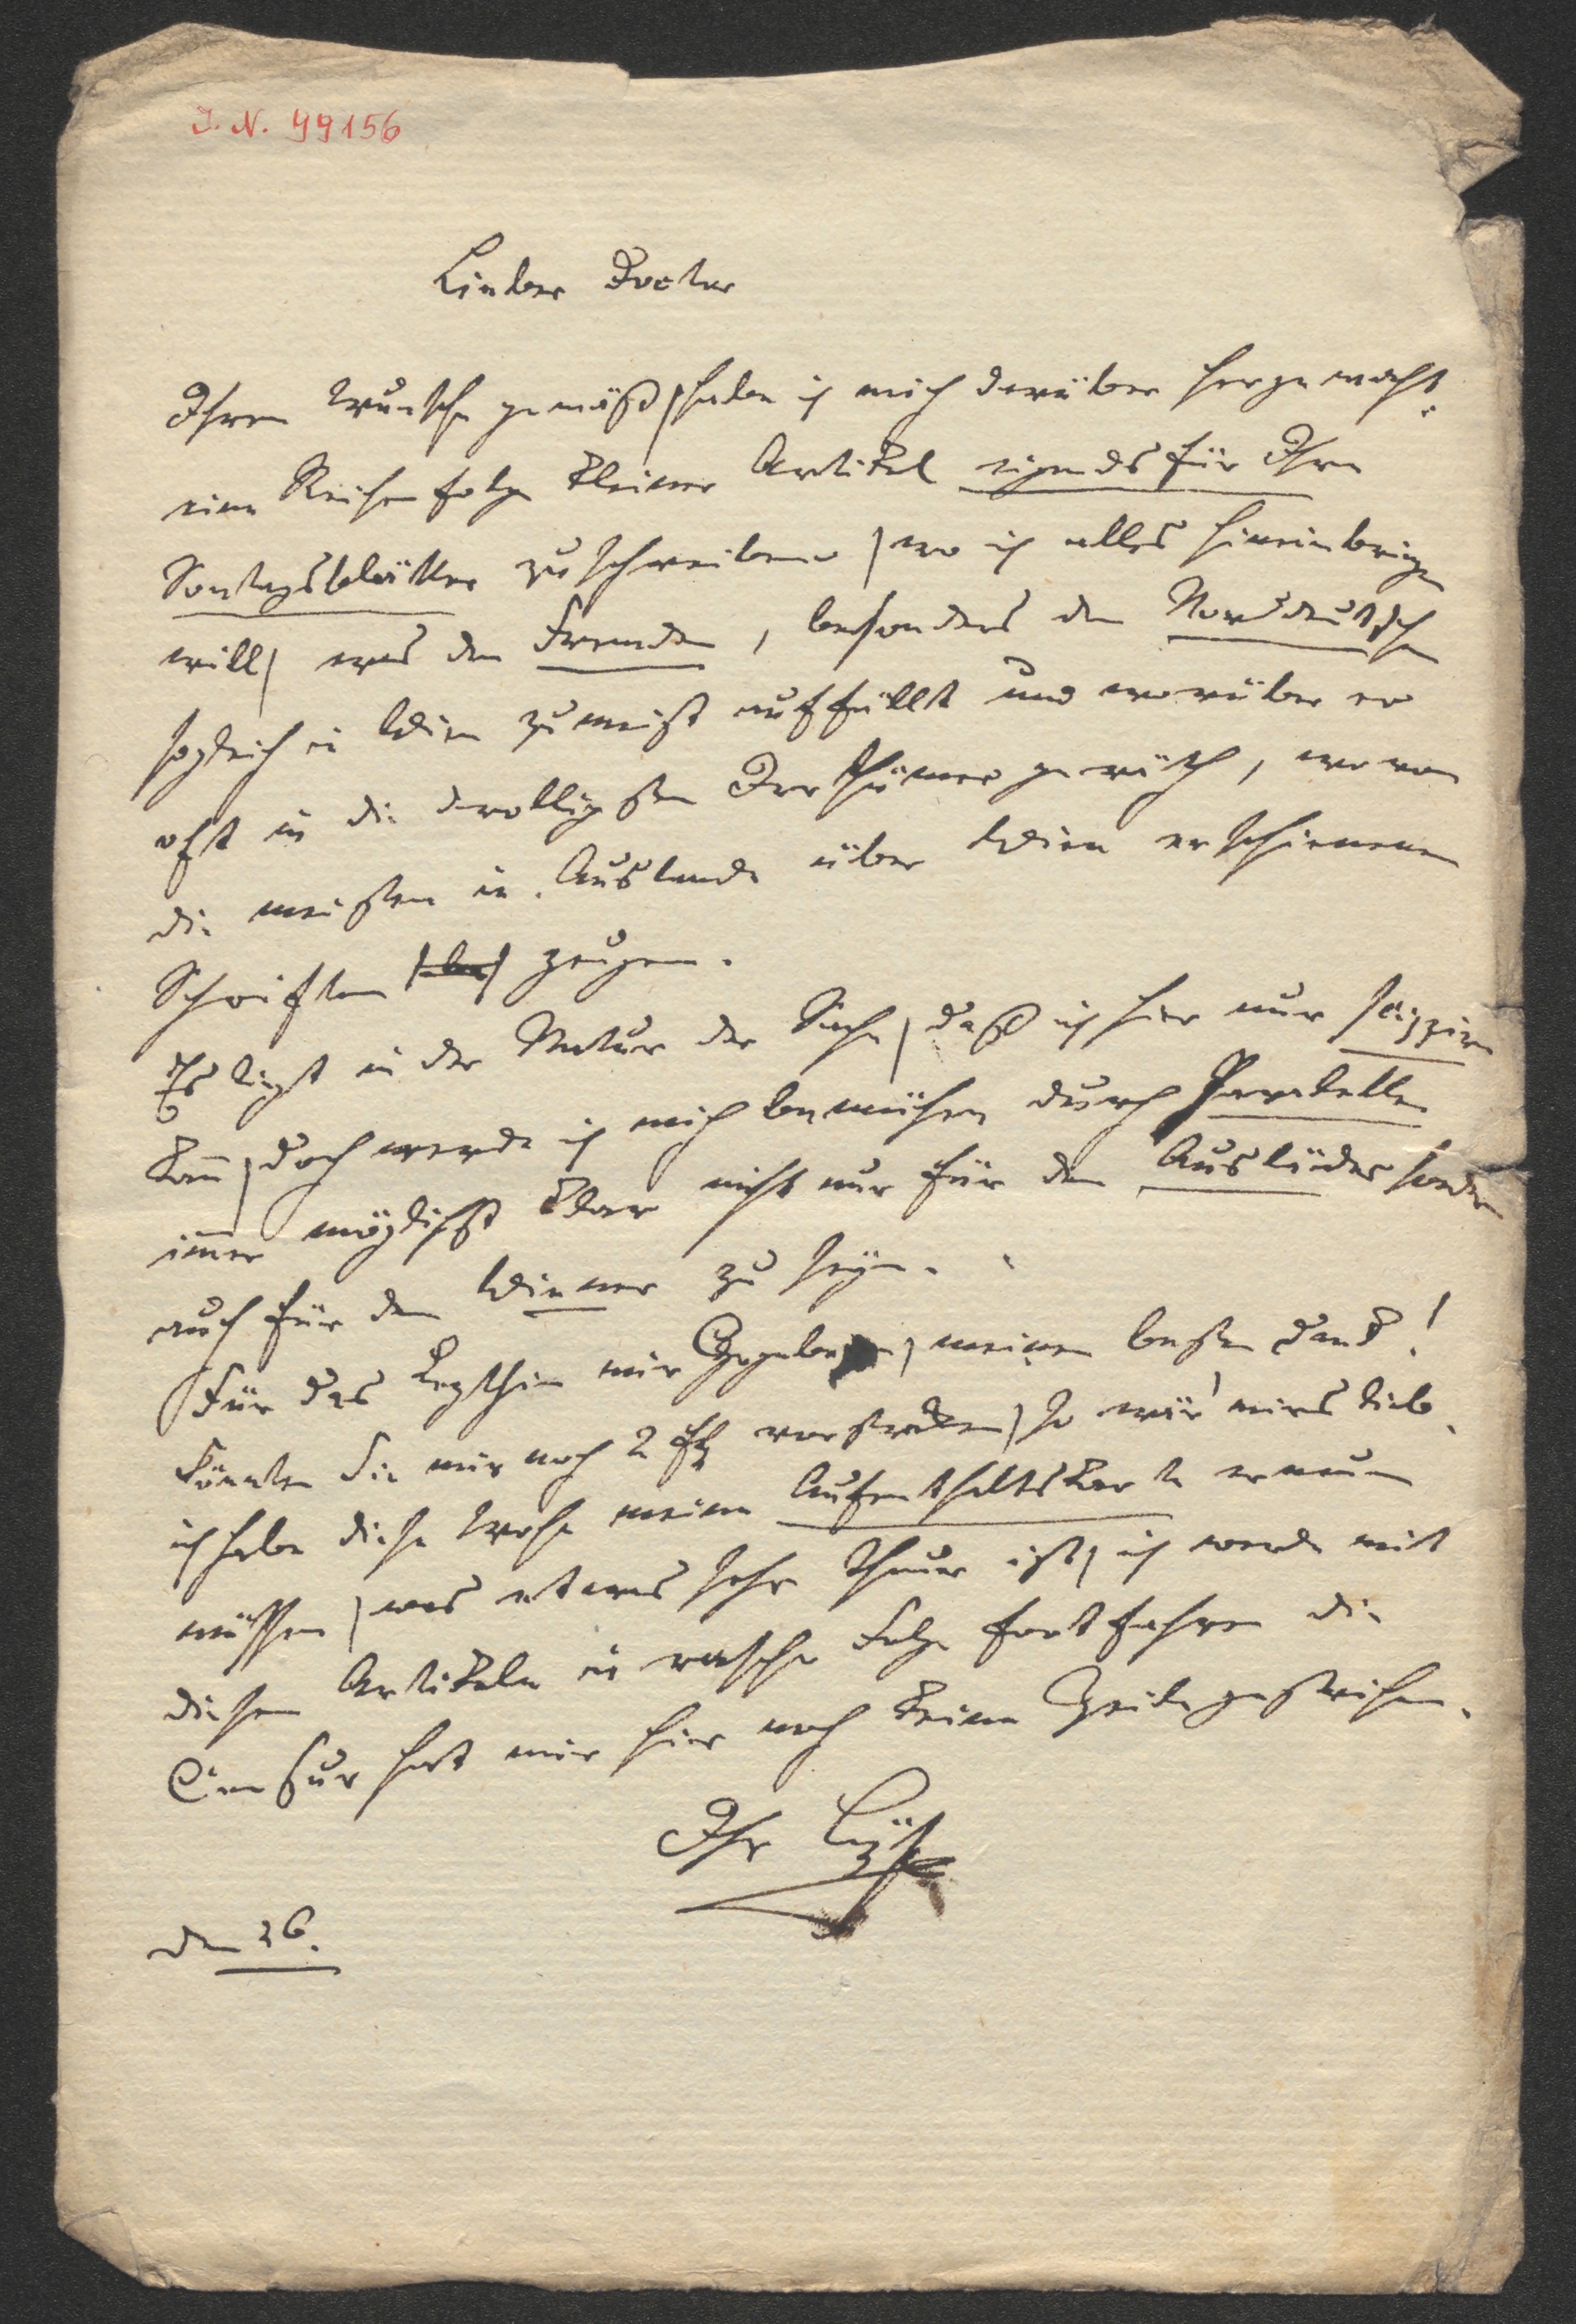 I. N. 99156
Lieber Doctor
Ihrem Wunsche gemäß, habe ich mich darüber hergemacht,
eine Reihenfolge kleiner Artikel eigends für Ihre
Sontagsblätter zu schreiben, wo ich alles hineinbringen
will, was den Fremden, besonders den Norddeutschen
sogleich in Wien zumeist auffällt und worüber er
oft in die drolligsten Irrthümer geräth, wovon
die meisten in Auslande über Wien erschienenen
Schriften zeugen.
Es liegt in der Natur der Sache, daß ich hier nur scizziren
kann, doch werde ich mich bemühen durch Paralellen
immer möglichst klar nicht nur für den Ausländer sondern
auch für den Wiener zu seyn.
Für das Letzthin mir Gegebene, meinen besten Dank!
Könnten Sie mir noch 2 f vorstrecken, so wär' mirs lieb.
ich habe diese Woche meine Aufenthaltskarte erneuern
müssen, was etwas sehr theuer ist, ich werde mit
diesen Artikeln in rascher Folge fortfahren die
Censur hat mir hier noch keine Zeile gestrichen.
Ihr Lyser
den 26.